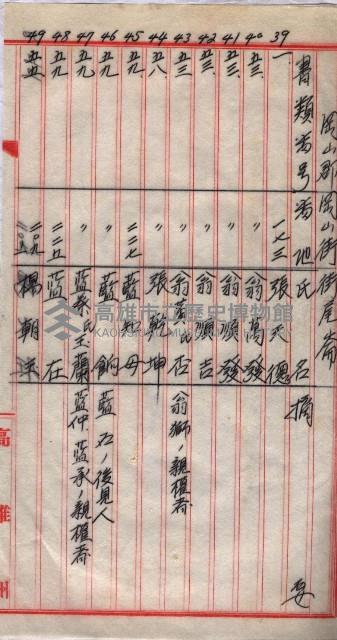 岡山郡岡山街街尾崙
書類番号 番地 氏名 摘要
39 一 一七三 張天德
40 五三 〃 翁萬發
41 五三 〃 翁順發
42 五三 〃 翁順吉
43 五三 〃 翁 氏否 翁獅ノ親權者
44 五八 〃 張乾坤
45 五九 二二七 藍知母
46 五九 〃 藍飼 藍 ノ後見人
47 五九 〃 藍 氏玉蘭 藍仲 藍承ノ親權者
48 五九 二二五 藍在
49 五五 楊朝
高雄州
高雄市立歷史博物館
KAOHSIUNG MUSEUM OF HISTORY